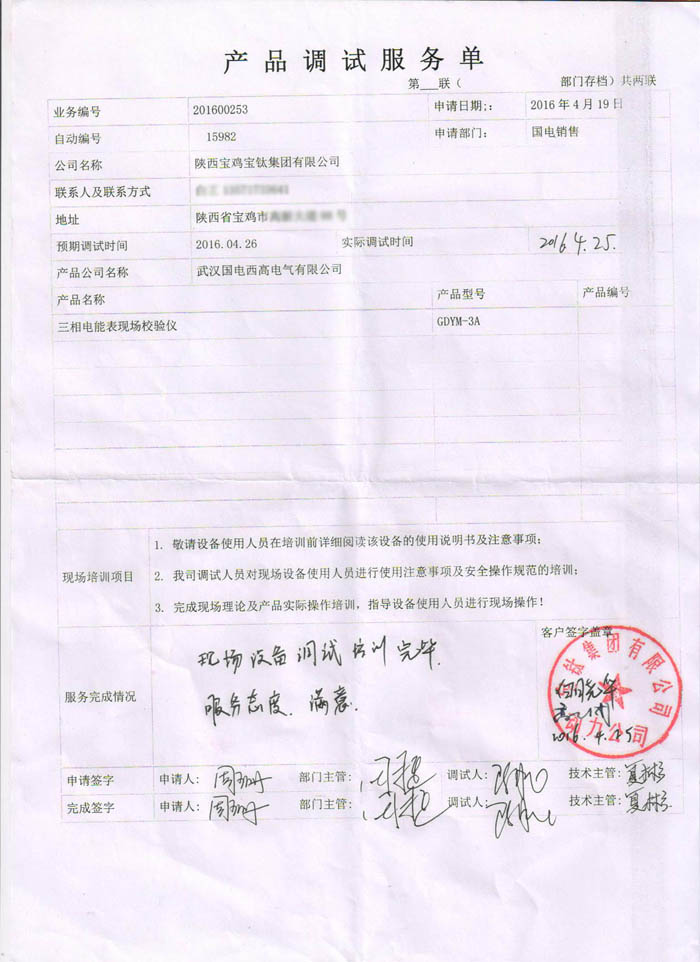 产品调试服务单
第___联（ 部门存档）共两联
业务编号 201600253 申请日期;: 2016年4月19日
自动编号 15982 申请部门: 国电销售
公司名称 陕西宝鸡宝钛集团有限公司
联系人及联系方式
地址 陕西省宝鸡市
预期调试时间 2016.04.26 实际调试时间 2016.4.25.
产品公司名称 武汉国电西高电气有限公司
产品名称 产品型号 产品编号
三相电能表现场校验仪 GDYM-3A
1. 敬请设备使用人员在培训前详细阅读该设备的使用说明书及注意事项;
现场培训项目 2. 我司调试人员对现场设备使用人员进行使用注意事项及安全操作规范的培训;
3. 完成现场理论及产品实际操作培训，指导设备使用人员进行现场操作！
客户签字盖章
现场设备调试培训完毕.
服务完成情况 服务态度. 满意.
钛集团有限公司
动力公司
2016.4.25
申请签字 申请人: 部门主管: 调试人: 技术主管:
完成签字 申请人: 部门主管: 调试人: 技术主管: